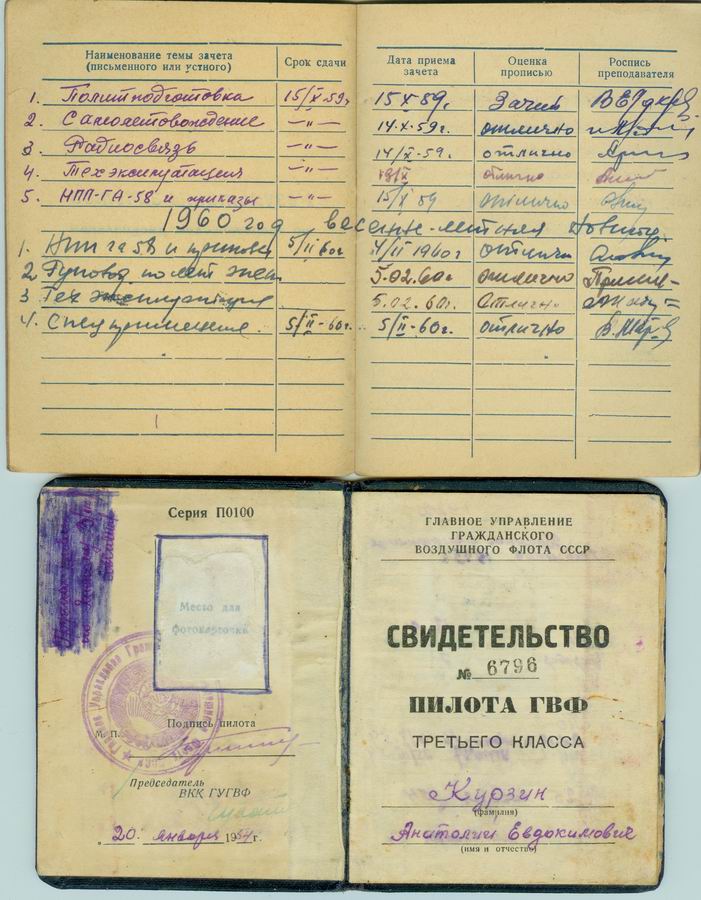 Наименование темы зачета
(письменного или устного)
Срок сдачи
Дата приема
зачета
Оценка
прописью
Роспись
преподавателя
1. Политподготовка 15/X-59г. 15 X 59г. Зачет
2. Самолетовождение —„— 14.X-59г. отлично
3. Радиосвязь —„— 14/X-59. отлично
4. Техэксплуатация —„— отлично
5. НПП-ГА-58 и приказы —„— 15/X 59 отлично
1960 год весенне-летняя
1. НПП га 58 и 5/II 60г 4/II 1960г отлично
2. по лет 5.02.60г отлично
3 Тех эксплуатация 5.02.60г. Отлично
4. Спецприменение. 5/II-60г. 5/II-60г. отлично
Серия П0100
Место для
фотокарточки
М. П.
Подпись пилота
Председатель
ВКК ГУГВФ
„20„ января 1954г.
ГЛАВНОЕ УПРАВЛЕНИЕ
ГРАЖДАНСКОГО
ВОЗДУШНОГО ФЛОТА СССР
СВИДЕТЕЛЬСТВО
№ 6796
ПИЛОТА ГВФ
ТРЕТЬЕГО КЛАССА
Курзин
(фамилия)
Анатолий Евдокимович
(имя и отчество)